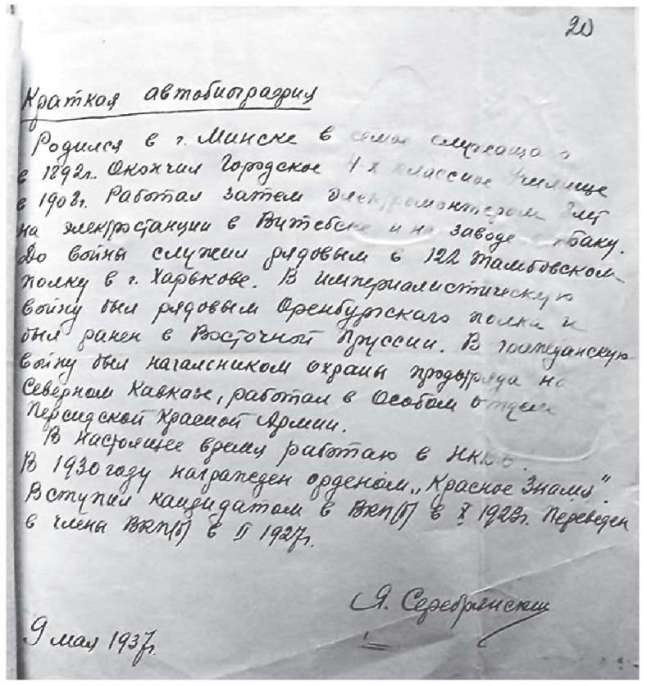 20
Краткая автобиография
Родился в г. Минске в семье служащего
в 1892г. Окончил Городское 4х классное Училище
в 1908г. Работал затем электромонтером
на электростанции в Витебске и на заводе Баку.
До войны служил рядовым в 122 Тамбовском
полку в г. Харькове. В империалистическую
войну был рядовым Оренбургского полка и
был ранен в Восточной Пруссии. В гражданскую
войну был начальником охраны продотряда на
Северном Кавказе, работал в Особом отделе
Персидской Красной Армии.
В настоящее время работаю в НКВД.
В 1930 году награжден орденом „Красное Знамя".
Вступил кандидатом в ВКП(б) в X 192 г. Переведен
в члена ВКП(б) в II 1927г.
Я. Серебрянский
9 мая 1937г.